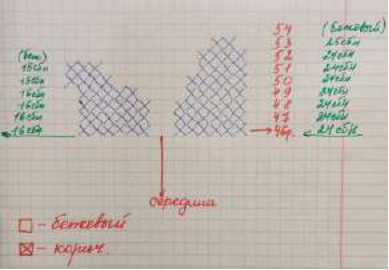 (беж)
15сбн
15сбн
16сбн
16сбн
16сбн
16сбн
54
53
52
51
50
49
48
47
46р.
(бежевый)
25сбн
24сбн
24сбн
24сбн
24сбн
24сбн
24сбн
24сбн
середина
- бежевый
- корич.